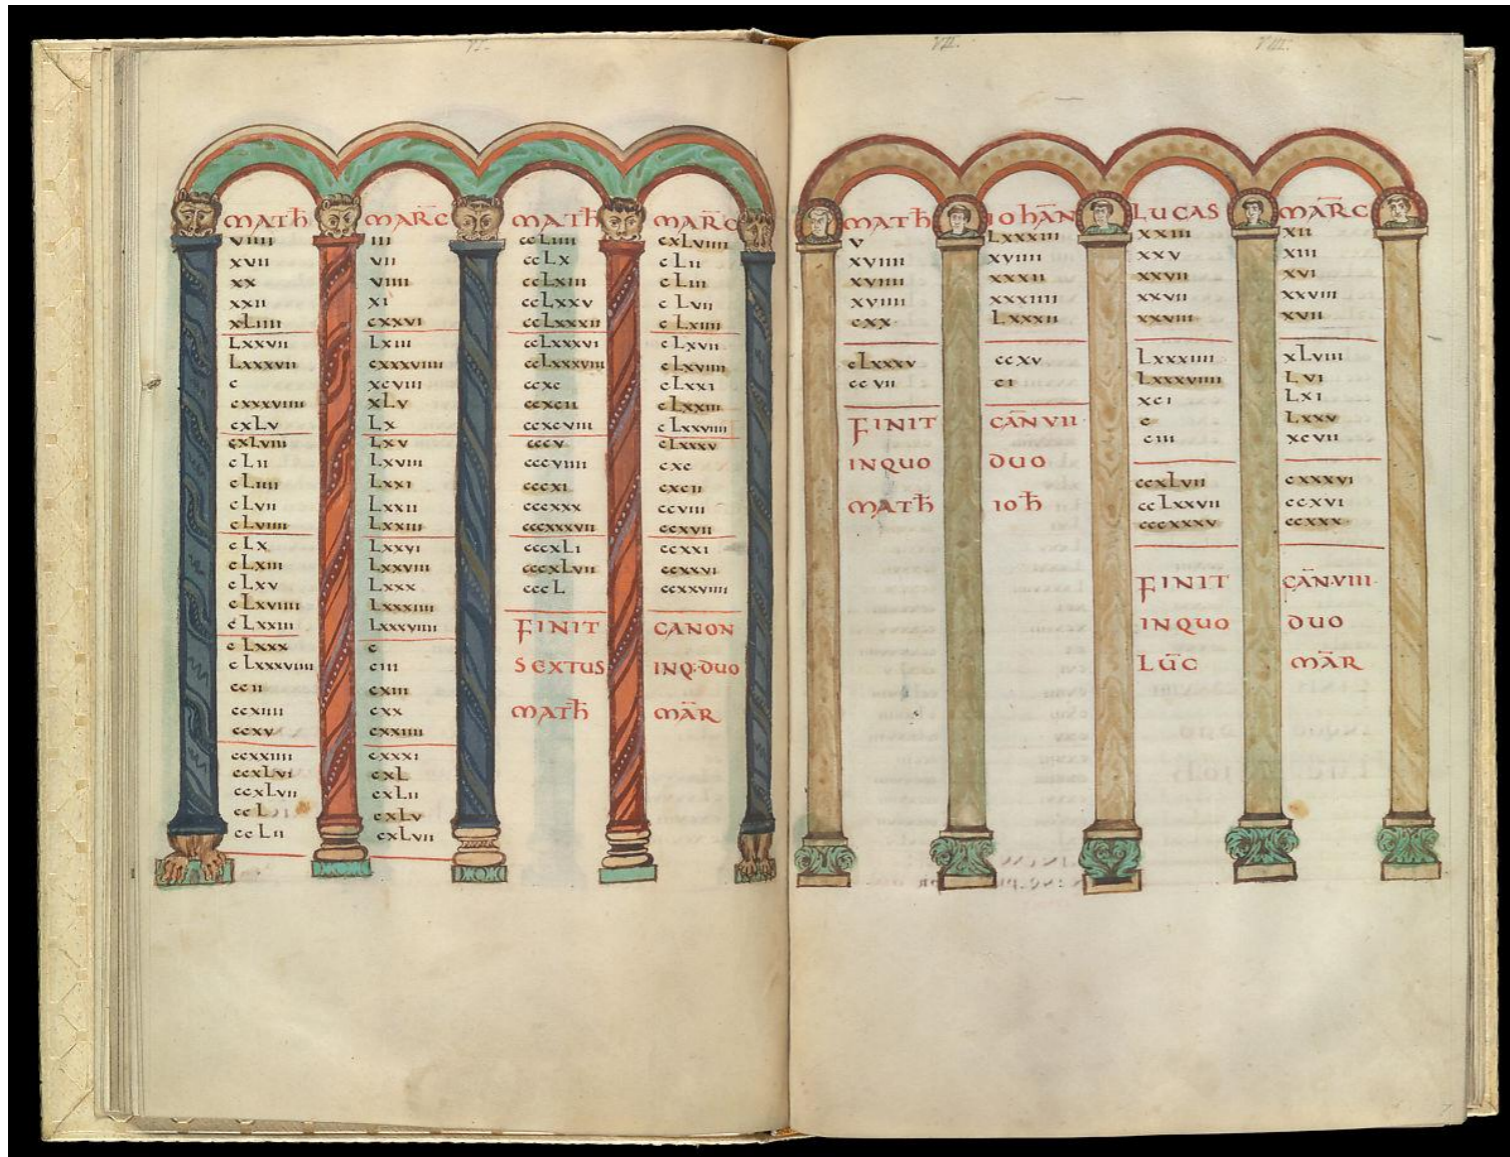 VI.
MATH
VIIII
XVII
XX
XXII
XLIIII
LXXVII
LXXXVII
C
CXXXVIIII
CXLV
CXLVIII
CLII
CLIIII
CLVII
CLVIIII
CLX
CLXIII
CLXV
CLXVIIII
CLXXIII
CLXXX
CLXXXVIIII
CCII
CCXIIII
CCXV
CCXXIIII
CCXLVI
CCXLVII
CCL
CCLII
MARC
III
VII
VIIII
XI
CXXVI
LXIII
CXXXVIIII
XCVIII
XLV
LX
LXV
LXVIII
LXXI
LXXII
LXXIII
LXXVI
LXXVIII
LXXX
LXXXIIII
LXXXVIIII
C
CIII
CXIII
CXX
CXXIIII
CXXXI
CXL
CXLII
CXLV
CXLVII
MATH
CCLIIII
CCLX
CCLXIII
CCLXXV
CCLXXXII
CCLXXXVI
CCLXXXVIII
CCXC
CCXCII
CCXCVIII
CCCV
CCCVIIII
CCCXI
CCCXXX
CCCXXXVII
CCCXLI
CCCXLVII
CCCL
FINIT
SEXTUS
MATH
MARC
CXLVIIII
CLII
CLIII
CLVII
CLXIIII
CLXVII
CLXVIIII
CLXXI
CLXXIII
CLXXVIIII
CLXXXV
CXC
CXCII
CCVIII
CCXVII
CCXXI
CCXXVI
CCXXVIIII
CANON
INQ·DUO
MAR
VII.
VIII.
MATH
V
XVIIII
XVIIII
XVIIII
CXX
CLXXXV
CCVII
FINIT
INQUO
MATH
IOHAN
LXXXIII
XVIIII
XXXII
XXXIIII
LXXXII
CCXV
CI
CAN VII·
DUO
IOH
LUCAS
XXIII
XXV
XXVII
XXVII
XXVIII
LXXXIIII
LXXXVIIII
XCI
C
CIII
CCXLVII
CCLXXVII
CCCXXXV
FINIT
INQUO
LUC
MARC
XII
XIII
XVI
XXVIII
XVII
XLVIII
LVI
LXI
LXXV
XCVII
CXXXVI
CCXVI
CCXXX
CAN·VIII·
DUO
MAR